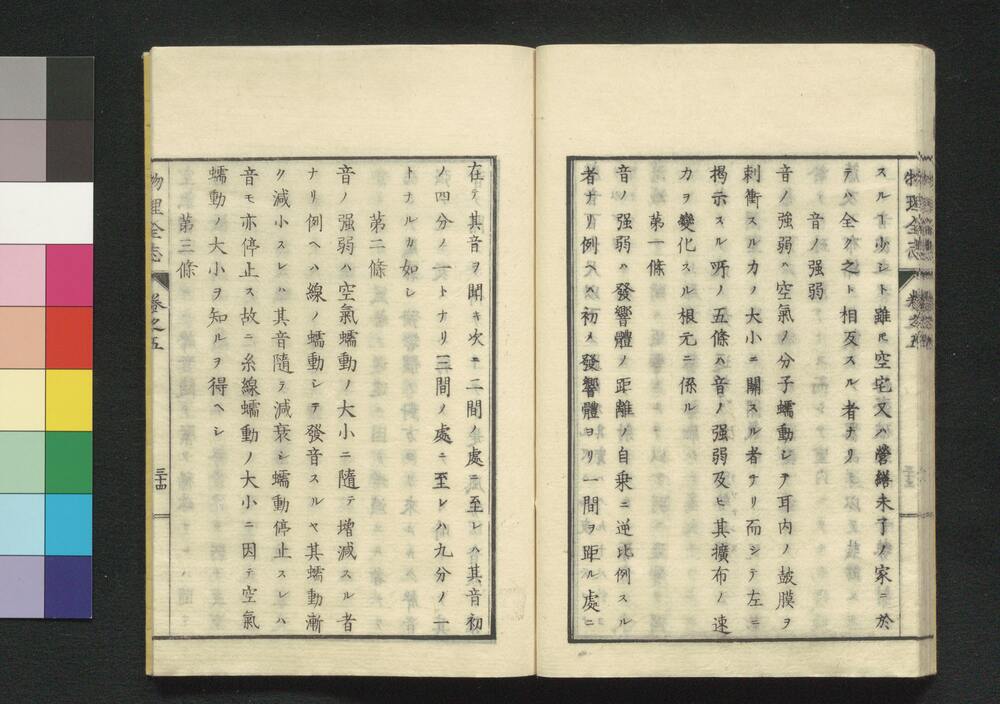 物理全志 卷之五
スルヿ少シト雖ヒ空宅又ハ營繕未了ノ家ニ於
テハ全ク之ト相反スル者ナリ
音ノ强弱
音ノ强弱ハ空氣ノ分子蠕動シテ耳内ノ鼓膜ヲ
刺衝スル力ノ大小ニ關スル者ナリ而シテ左ニ
揭示スル所ノ五條ハ音ノ强弱及ヒ其擴布ノ速
力ヲ變化スル根元ニ係ル
第一條
音ノ强弱ハ發響體ノ距離ノ自乗ニ逆比例スル
者ナリ例ヘハ初メ發響體ヨリ一間ヲ距ル處ニ
在テ其音ヲ聞キ次ニ二間ノ處ニ至レハ其音初
ノ四分ノ一トナリ三間ノ處ニ至レハ九分ノ一
トナルカ如シ
第二條
音ノ强弱ハ空氣蠕動ノ大小ニ隨テ增減スル者
ナリ例ヘハ線ノ蠕動シテ發音スルヤ其蠕動漸
ク減小スレハ其音隨テ減衰シ蠕動停止スレハ
音モ亦停止ス故ニ糸線蠕動ノ大小ニ因テ空氣
蠕動ノ大小ヲ知ルヲ得ヘシ
第三條
物理全志 卷之五 三十四